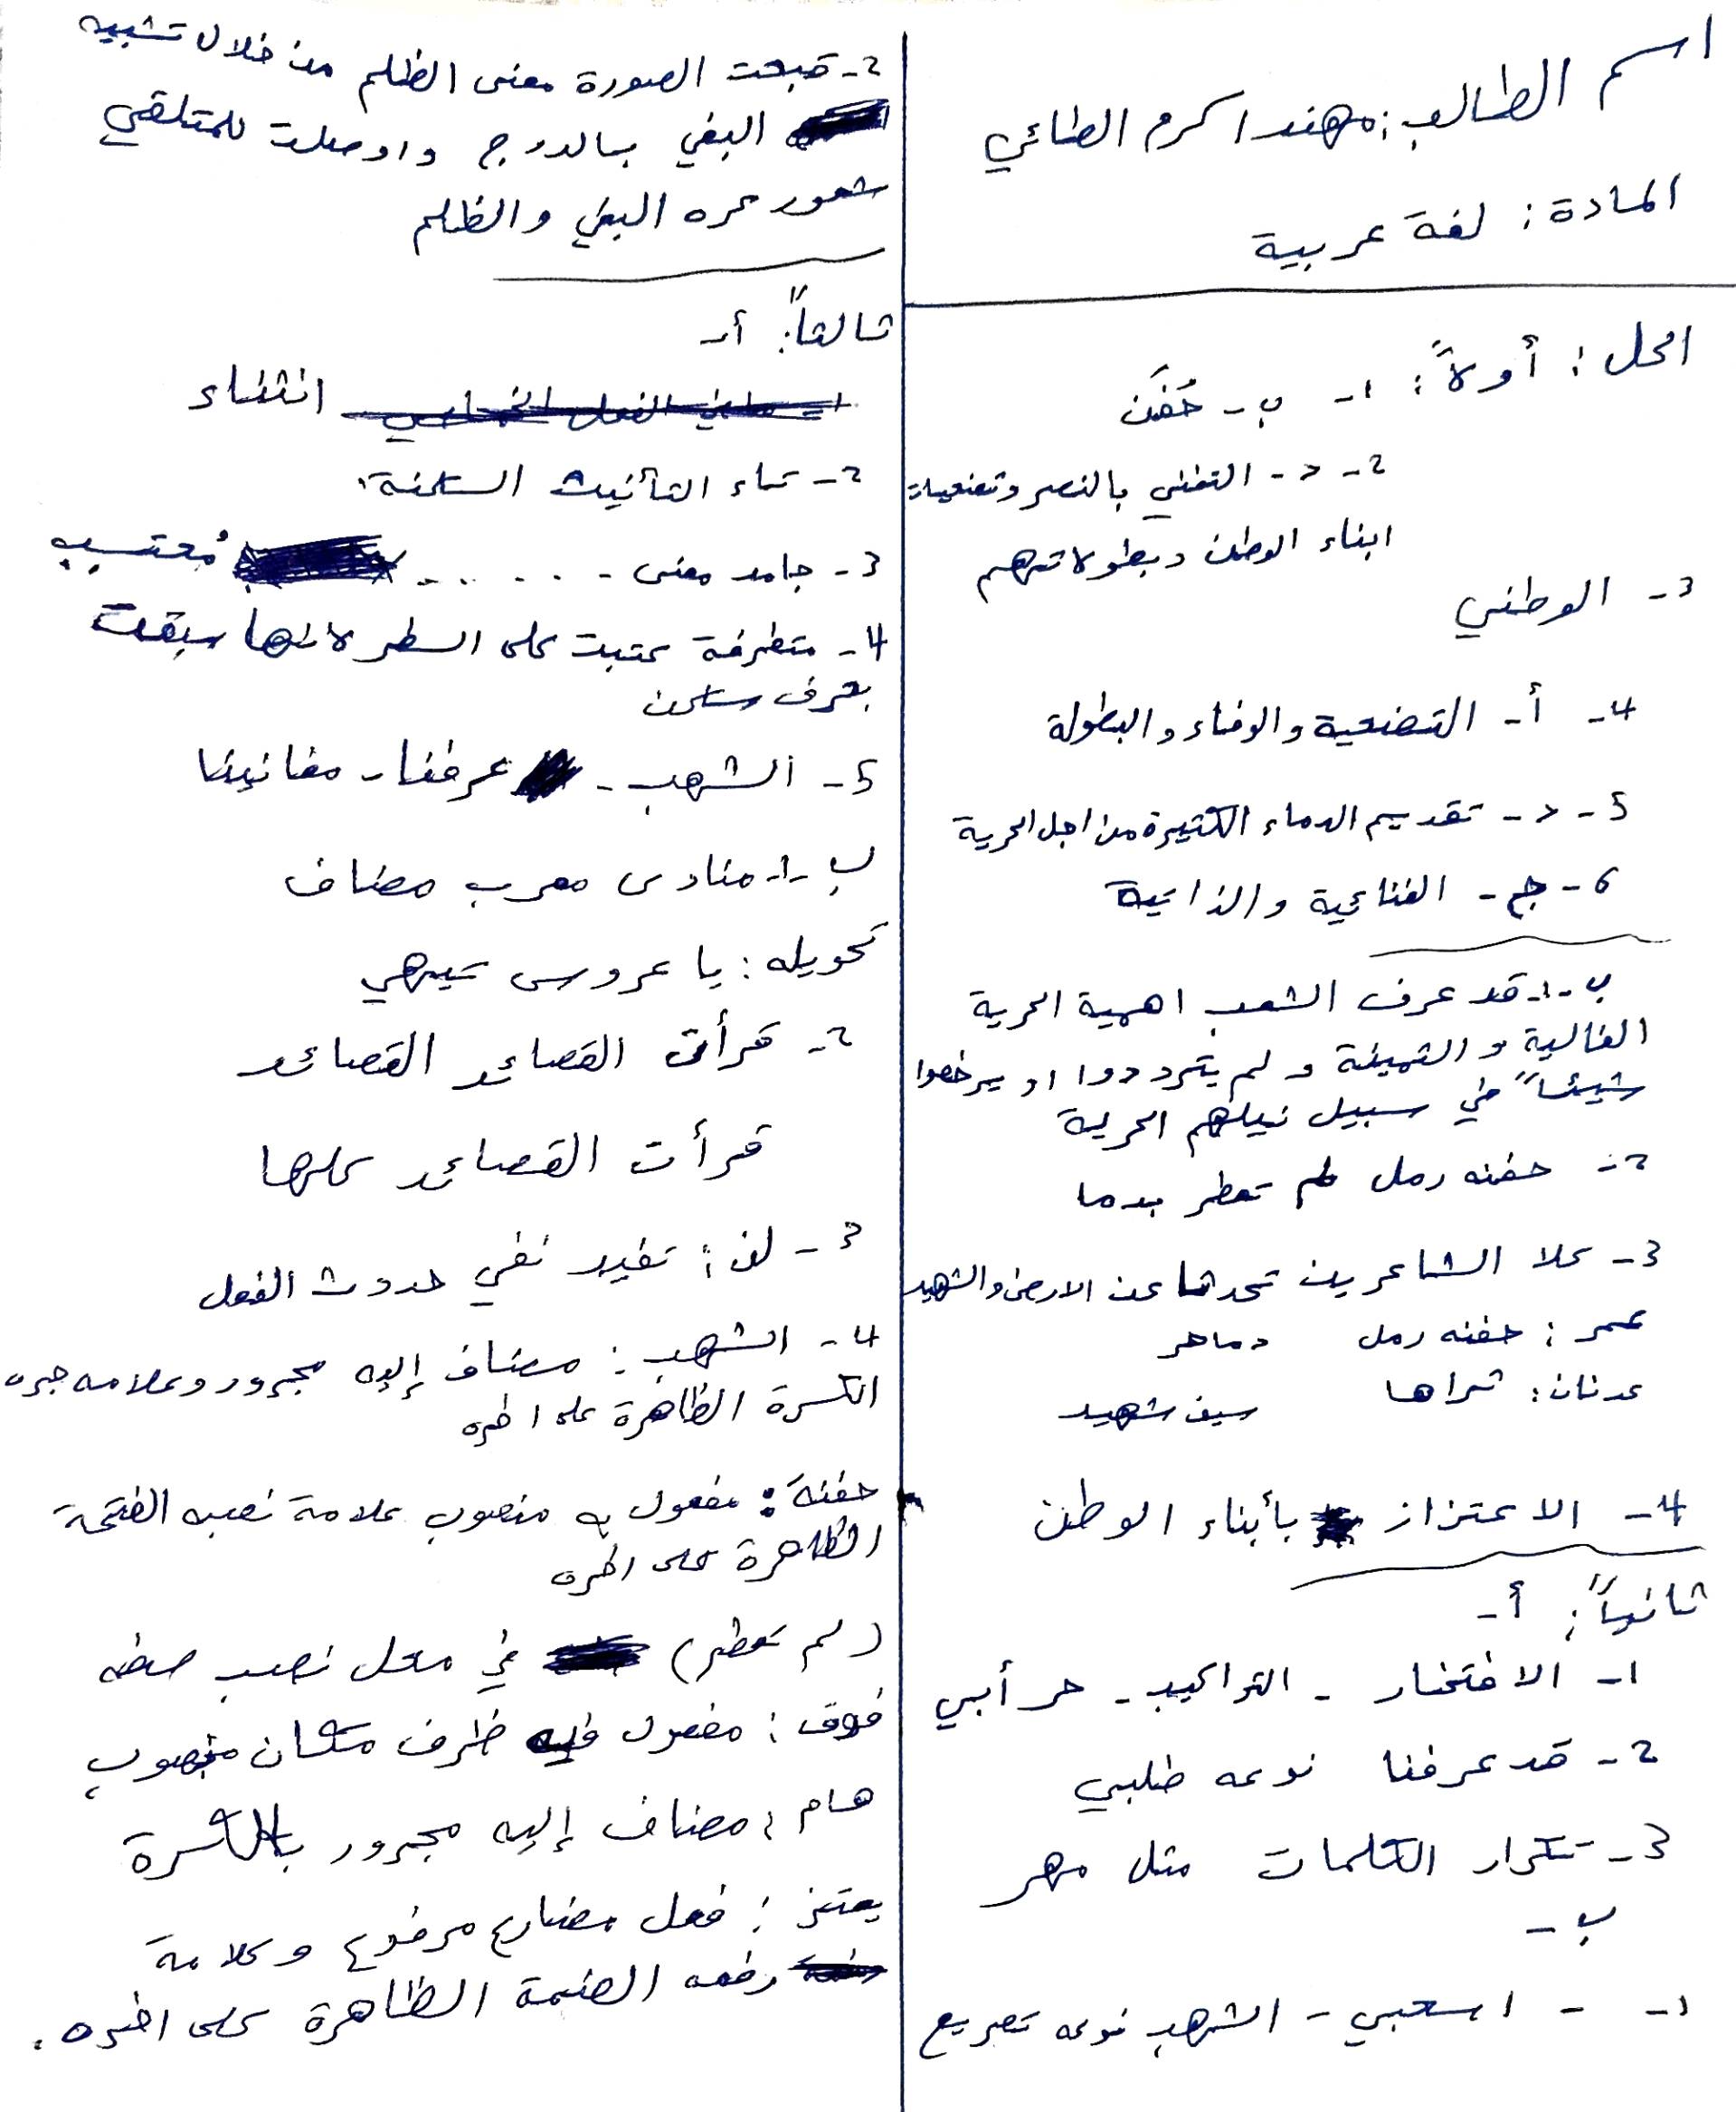 اسم الطالب: مهند اكرم الطائي
المادة: لغة عربية
الحل: أولاً: 1- ب- حُفَن
2- د- التغني بالنصر وتضحيات
ابناء الوطن وبطولاتهم
3- الوطني
4- أ- التضحية والوفاء والبطولة
5- د- تقديم الدماء الكثيرة من اجل الحرية
6- ج- الغنائية والذاتية
ب-1- قد عرف الشعب اهمية الحرية
الغالية و الثمينة و لم يترددوا او يرخصوا
شيئاً في سبيل نيلهم الحرية
2- حفنه رمل لم تعطر بدما
3- كلا الشاعرين تحدثا عن الارض والشهيد
عمر: حفنه رمل دما حر
عدنان: ثراها سيف شهيد
4- الاعتزاز بأبناء الوطن
ثانياً: أ-
1- الافتخار - التراكيب - حر أبي
2- قد عرفنا نوعه طلبي
3- تكرار الكلمات مثل مهر
ب-
1- - اسحبي - الشهب نوعه تصريع
2- قبحت الصورة معنى الظلم من خلال تشبيه
البغي بالدرج واوصلت للمتلقي
شعور كره البغي والظلم
ثالثاً: أ-
انثناء
2- تاء التأنيث الساكنة.
3- جامد معنى - . . . . . - مُحتسب
4- متطرفة كتبت على السطر لانها سبقت
بحرف ساكن
5- الشهب - عرفنا - مغانينا
ب-1- منادى معرب مضاف
تحويله: يا عروس تيهي
2- قرأت القصائد القصائد
قرأت القصائد كلها
3- لن: تفيد نفي حدوث الفعل
4- الشهب: مضاف إليه مجرور وعلامه جره
الكسرة الظاهرة على اخره
حفنة: مفعول به منصوب علامة نصبه الفتحة
الظاهرة على اخره
(لم تعطر) في محل نصب صفه
فوق: مفعول فيه ظرف مكان منصوب
هام: مضاف إليه مجرور بالكسرة
يعتز: فعل مضارع مرفوع وعلامة
رفعه الضمة الظاهرة على اخره.